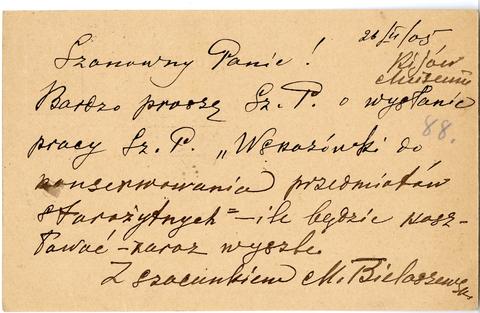 26/II/05
Szanowny Panie!
Kijów
Muzeum
Bardzo proszę Sz. P. o wysłanie
88.
pracy Sz. P. „Wskazówki do
konserwowania przedmiotów
starożytnych" – ile będzie kosz-
tować – zaraz wyszlę.
Z szacunkiem M. Bielaszewski